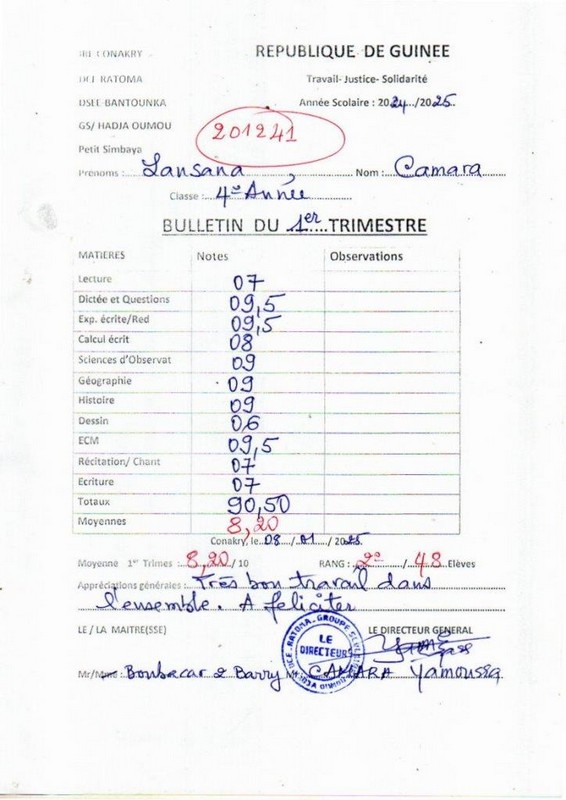 IRE CONAKRY REPUBLIQUE DE GUINEE
DCE RATOMA Travail- Justice- Solidarité
DSEE-BANTOUNKA Année Scolaire : 2024/2025
GS/ HADJA OUMOU
201241
Petit Simbaya
Prénoms : Lansana Nom : Camara
Classe : 4e Année
BULLETIN DU 1er TRIMESTRE
MATIERES Notes Observations
Lecture 07
Dictée et Questions 09,5
Exp. écrite/Red 09,5
Calcul écrit 08
Sciences d'Observat 09
Géographie 09
Histoire 09
Dessin 06
ECM 09,5
Récitation/ Chant 07
Ecriture 07
Totaux 90,50
Moyennes 8,20
Conakry, le 08 / 01 / 2025
Moyenne 1er Trimes : 8,20 / 10 RANG : 2e / 48 Elèves
Appréciations générales : Très bon travail dans
l'ensemble. A feliciter
LE / LA MAITRE(SSE) LE DIRECTEUR GENERAL
LE DIRECTEUR
DCE-RATOMA GROUPE
Mr/Mme : Boubacar Barry M CAMARA Yamoussa